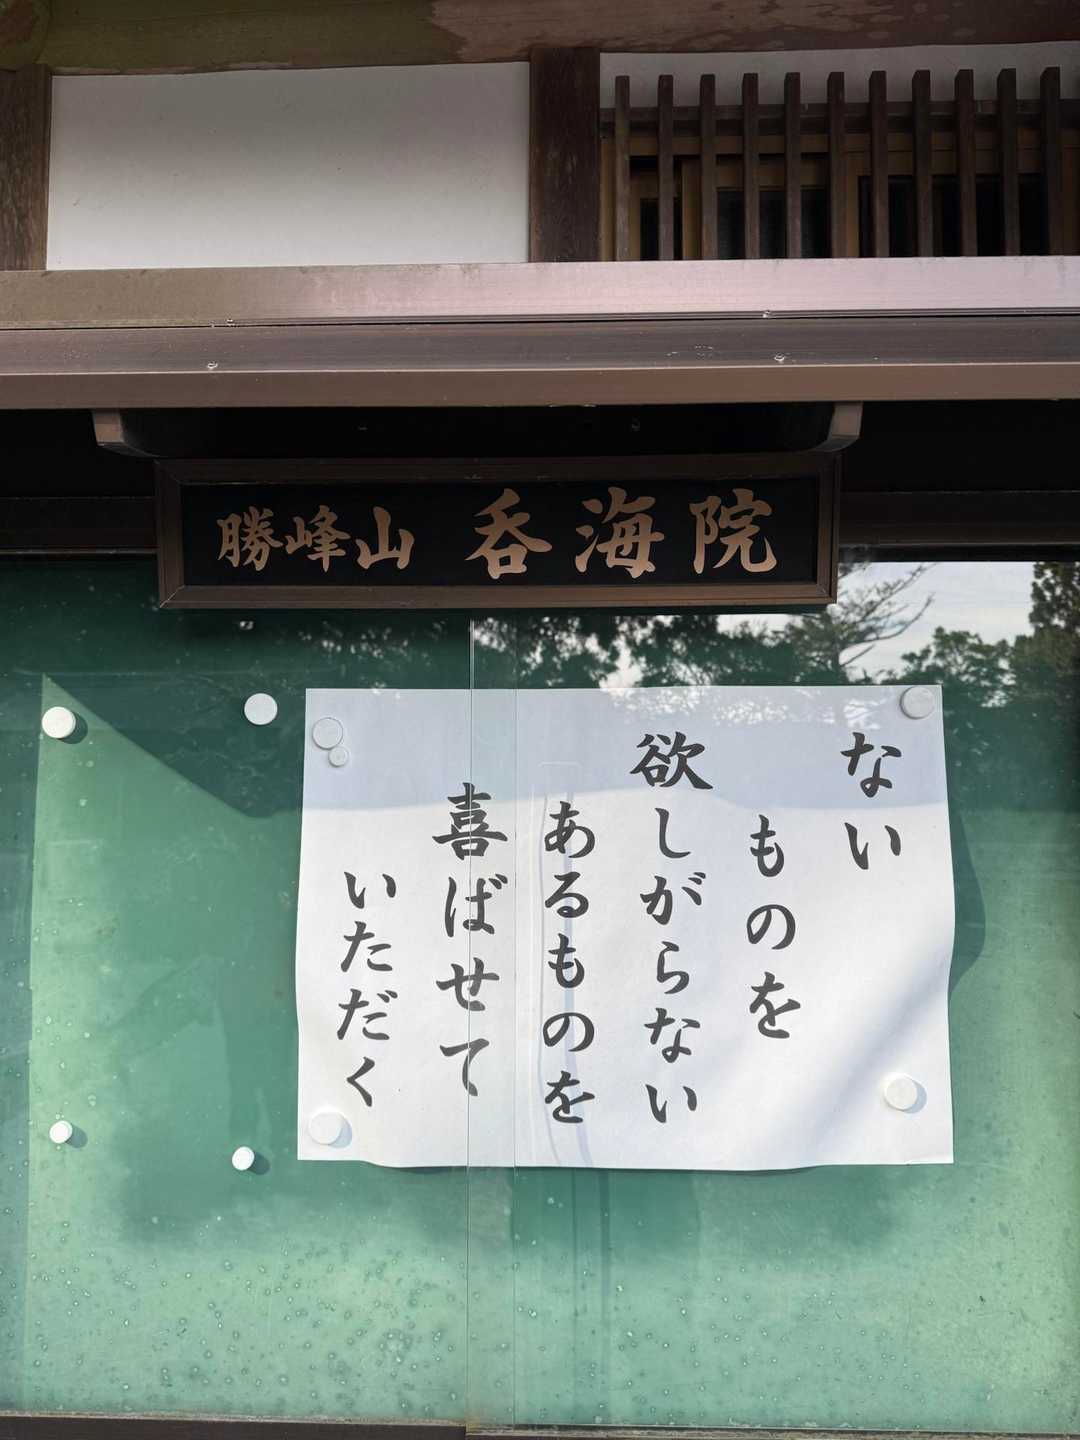 勝峰山 呑海院
ない
ものを
欲しがらない
あるものを
喜ばせて
いただく